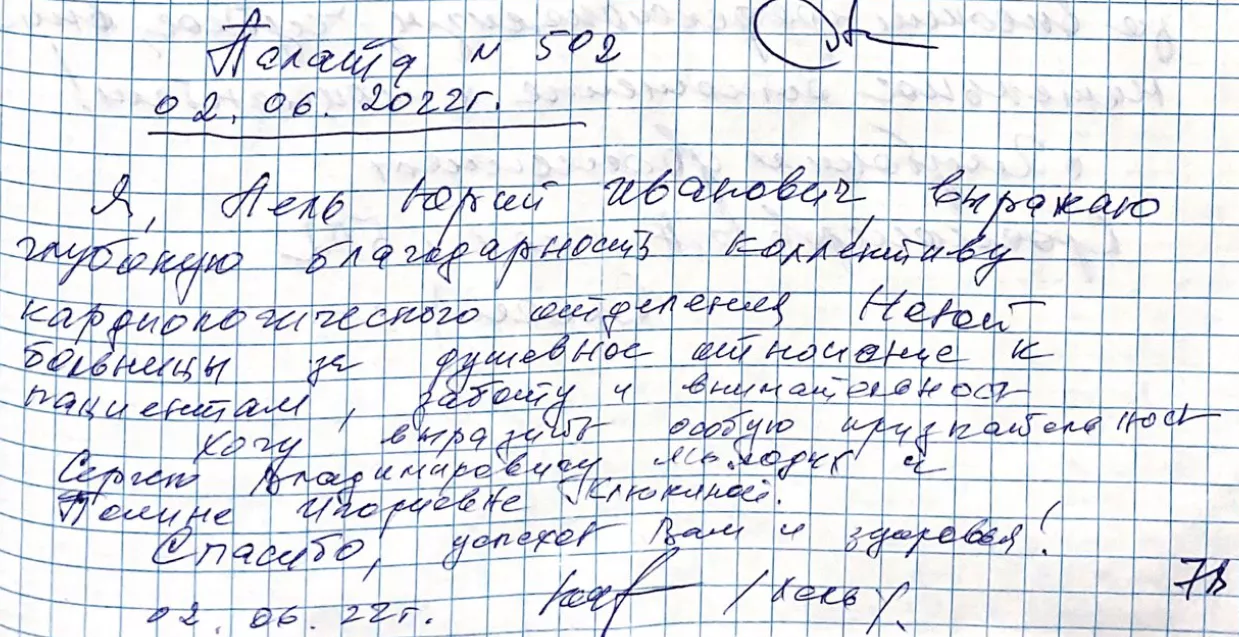 Палата N 502
02. 06. 2022г.
Я, Юрий Иванович, выражаю
глубокую благодарность коллективу
кардиологического отделения Новой
больницы за душевное отношение к
пациентам, заботу и внимательность
Хочу выразить особую признательность
Сергею Владимировичу и
Полине Игоревне Клюкиной.
Спасибо, успехов Вам и здоровья!
02. 06. 22г.